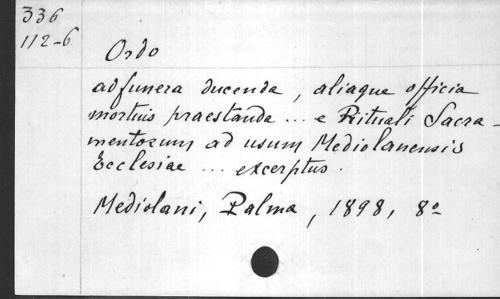 336
112-6
Ordo
ad funera ducenda, aliaque officia
mortuis praestanda ... e Rituali Sacra-
mentorum ad usum Mediolanensis
Ecclesiae ... excerptus.
Mediolani, Palma, 1898, 8º